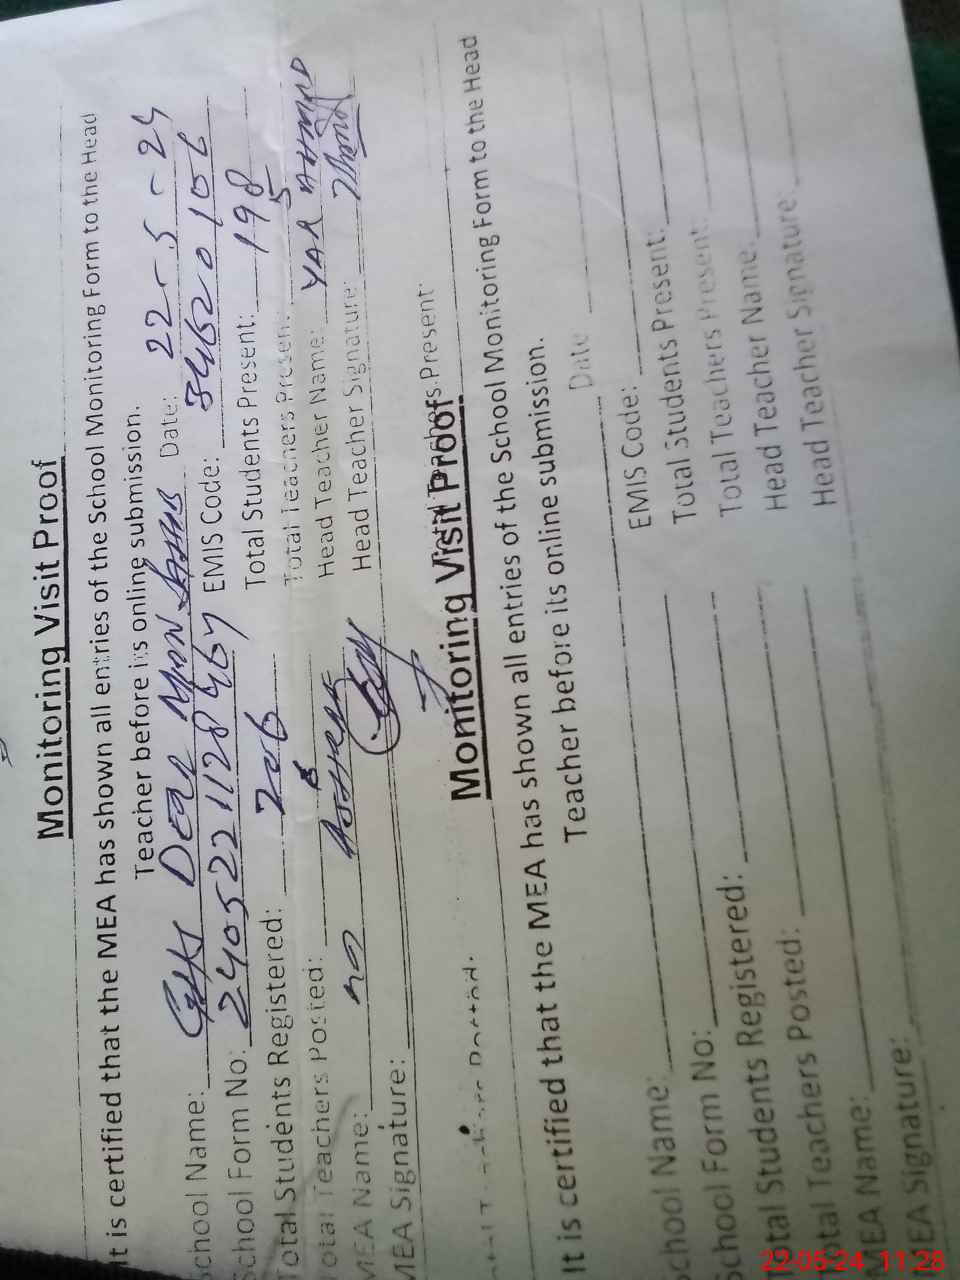 Monitoring Visit Proof
It is certified that the MEA has shown all entries of the School Monitoring Form to the Head
Teacher before its online submission.
School Name: Date: 22-5-24
School Form No: EMIS Code:
Total Students Registered: 206 Total Students Present: 198
Total Teachers Posted: 8 Total Teachers Present: 5
MEA Name: Head Teacher Name: YAR AHMAD
MEA Signature: Head Teacher Signature:
Present
Monitoring Visit Proof
It is certified that the MEA has shown all entries of the School Monitoring Form to the Head
Teacher before its online submission.
School Name: Date
School Form No: EMIS Code:
Total Students Registered: Total Students Present:
Total Teachers Posted: Total Teachers Present:
MEA Name: Head Teacher Name:
MEA Signature: Head Teacher Signature:
22-05-24 11:28